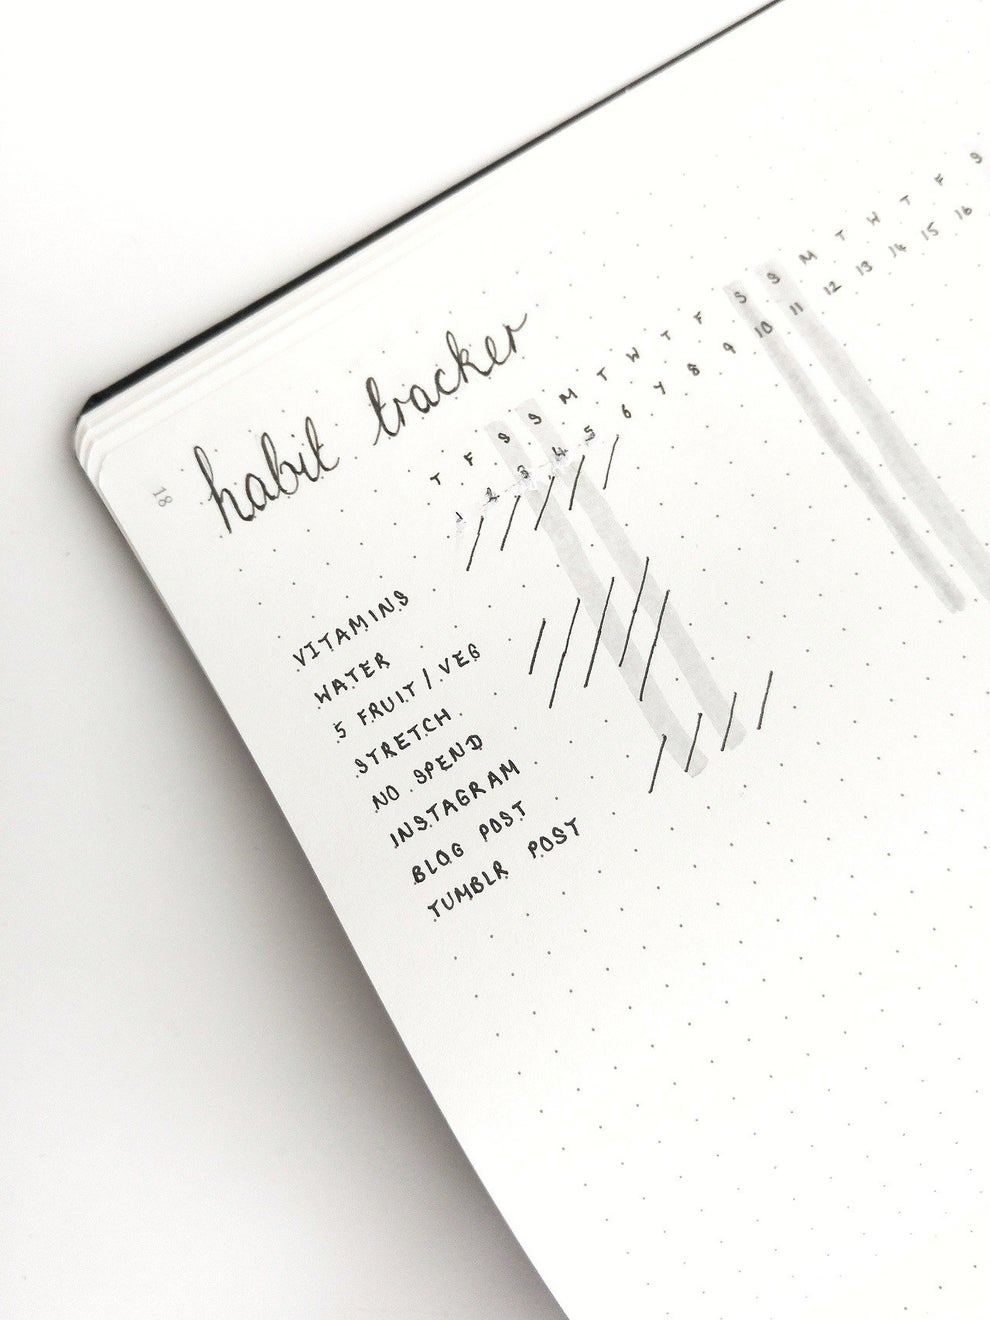 18
habit tracker
T F S S M T W T F S S M T W T F S
1 2 3 4 5 6 7 8 9 10 11 12 13 14 15 16
VITAMINS
WATER
5 FRUIT / VEG
STRETCH
NO SPEND
INSTAGRAM
BLOG POST
TUMBLR POST